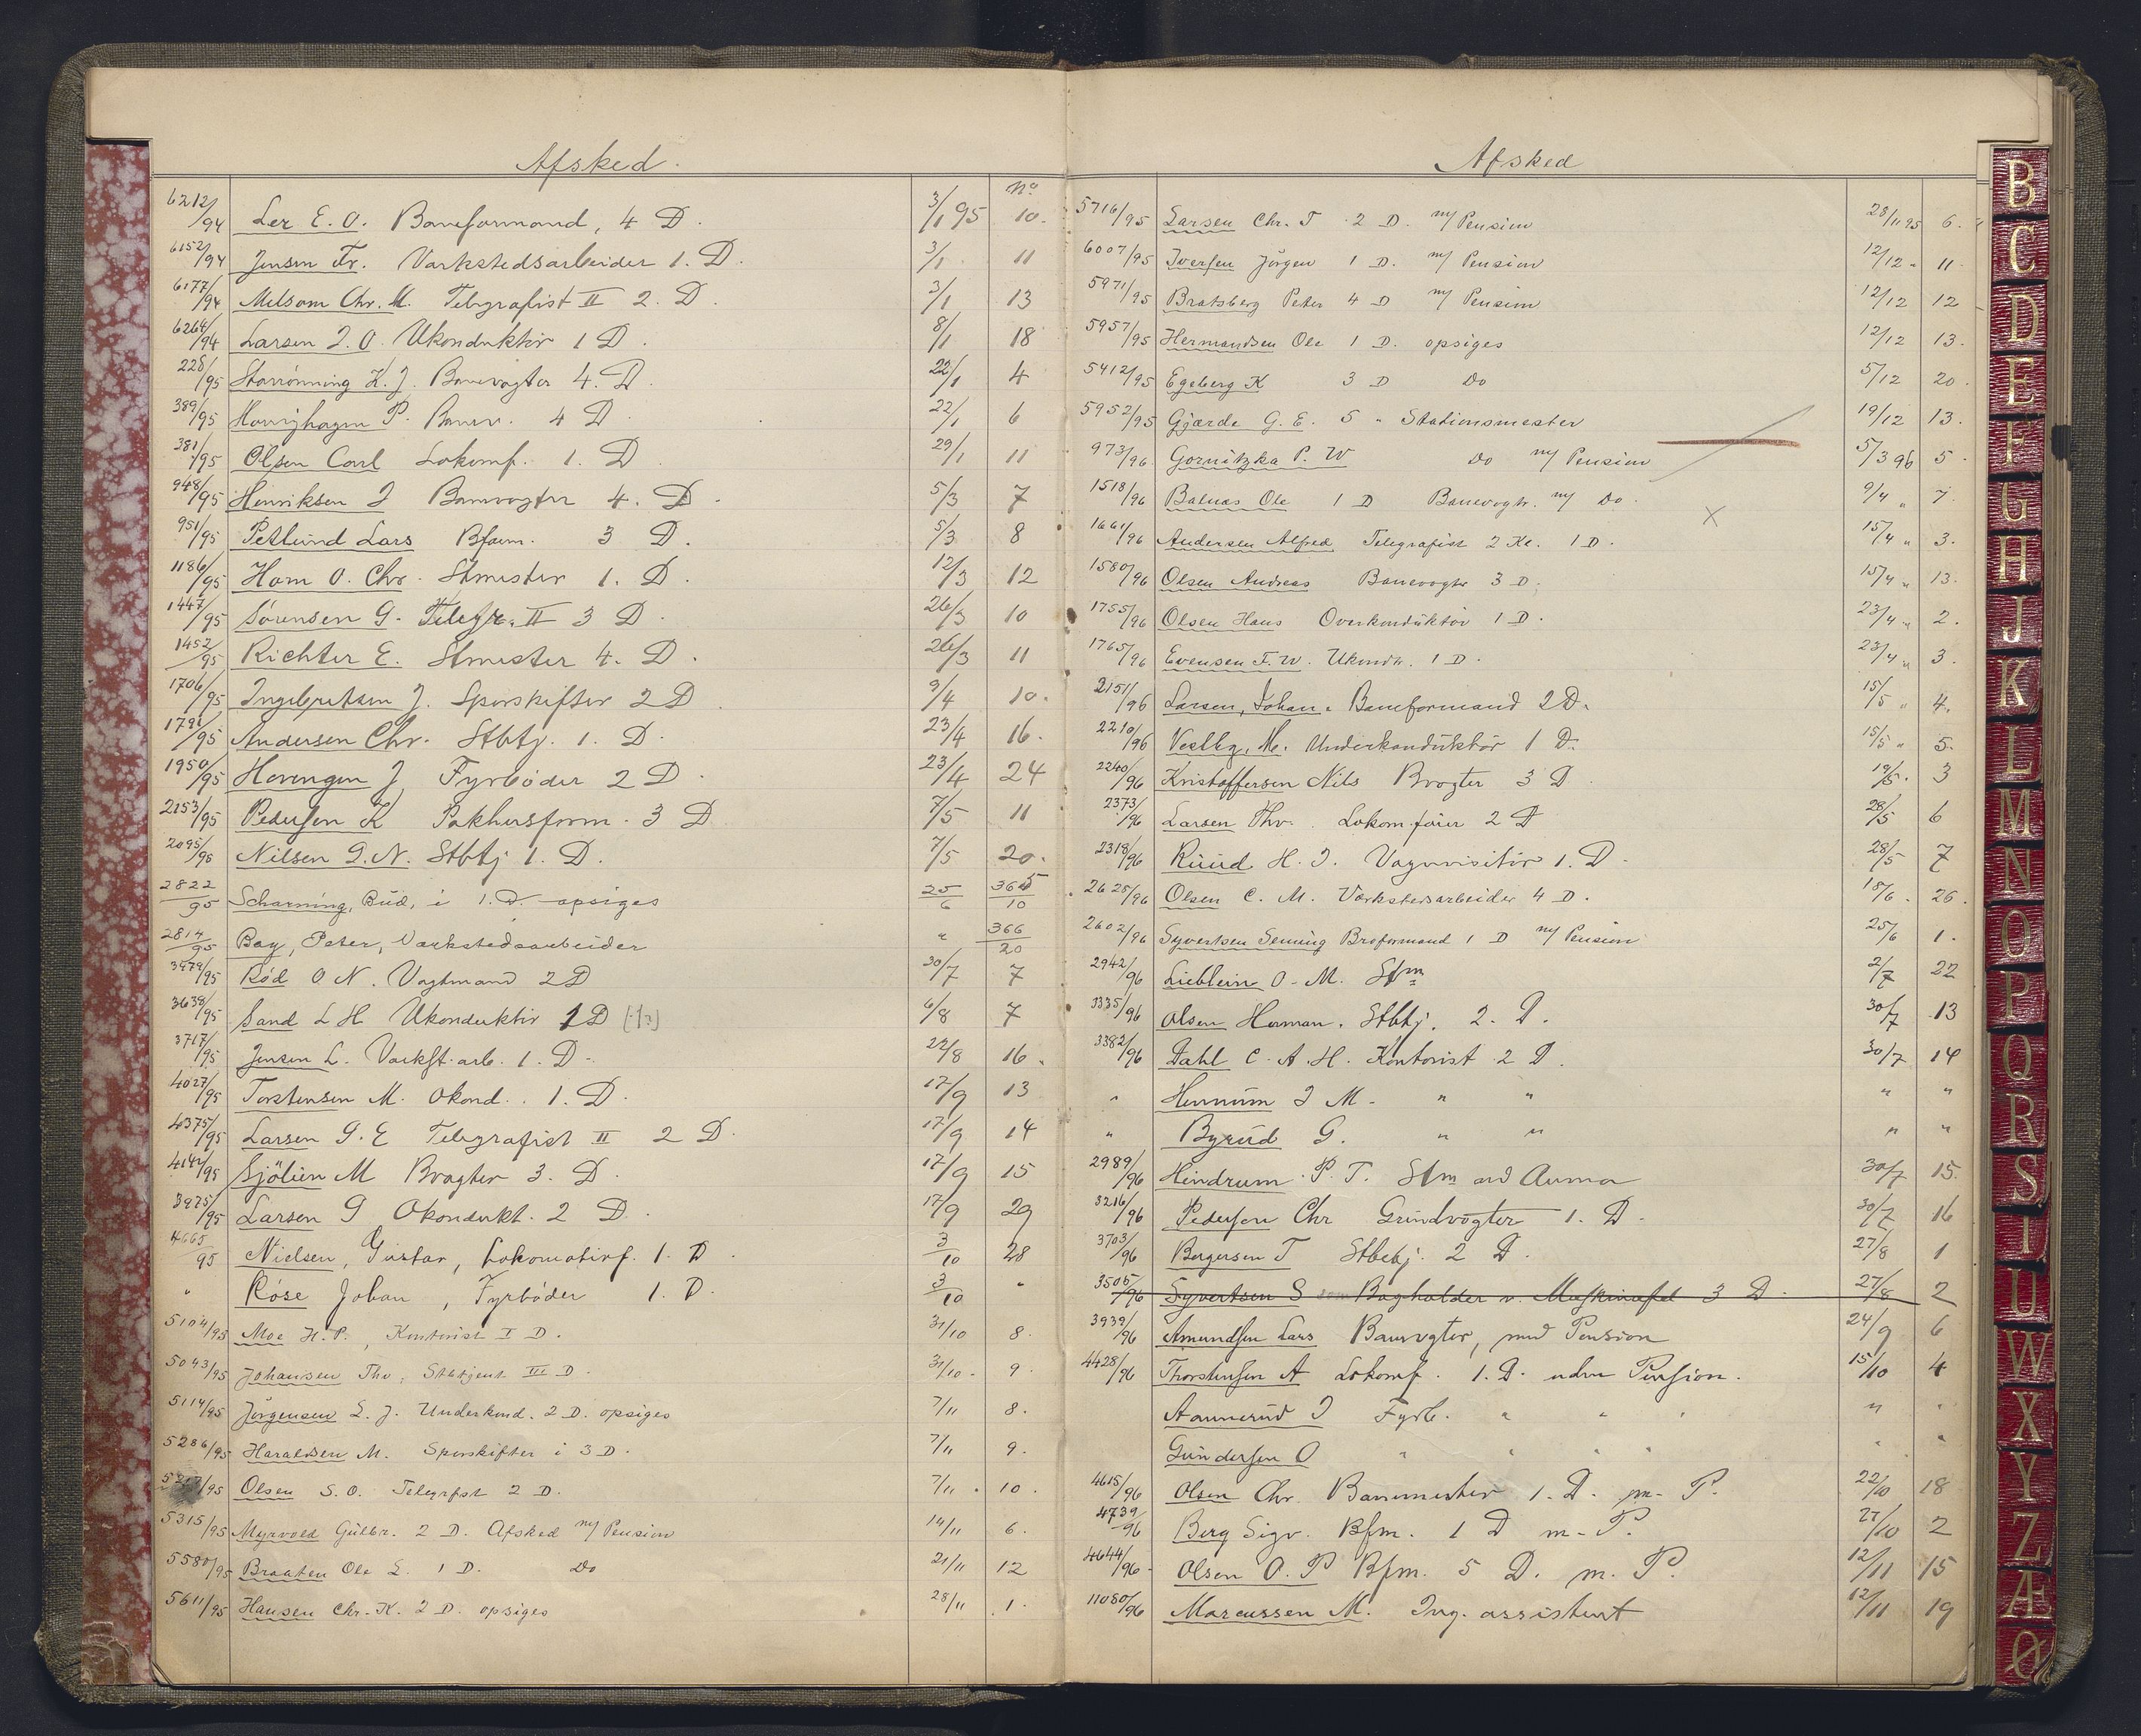 Afsked.
No
6212/94 Ler E. O. Baneformand, 4 D. 3/1 95 10.
6152/94 Jensen Fr. Værkstedsarbeider 1. D. 3/1 11
6177/94 Melsom Chr. M. Telegrafist II 2. D. 3/1 13
6264/94 Larsen J. O. Ukonduktør 1 D. 8/1 18
228/95 Storrønning K. J. Banevogter 4. D. 22/1 4
389/95 P. Banev. 4 D. 22/1 6
381/95 Olsen Carl Lokomf. 1. D. 29/1 11
948/95 Henriksen J Banevogter 4. D. 5/3 7
951/95 Petlund Lars Bform. 3 D. 5/3 8
1186/95 Ham O. Chr. Stmester 1. D. 12/3 12
1447/95 Sørensen G. Telegr. II 3 D. 26/3 10
1452/95 Richter E. Stmester 4. D. 26/3 11
1706/95 Ingebretsen J. Sporskifter 2 D. 9/4 10.
1791/95 Andersen Chr. Stbtj. 1. D. 23/4 16.
1950/95 Herengen J Fyrbøder 2 D. 23/4 24
2153/95 Pedersen K Pakhusform. 3 D 7/5 11
2095/95 Nilsen G. N. Stbtj 1. D. 7/5 20.
2822/95 Scharning, Bud, i 1. D. opsiges 25/6 365/10
2814/95 Bay, Peter, Værkstedsarbeider " 366/20
3479/95 Rød O N. Vagtmand 2 D 30/7 7
3638/95 Sand L H Ukonduktør 1 D 6/8 7
3717/95 Jensen L. Værkst. arb. 1. D. 22/8 16.
4027/95 Torstensen M. Okond. 1. D. 17/9 13
4375/95 Larsen G. E Telegrafist II 2 D. 17/9 14
4142/95 Sjölien M Bvogter 3. D. 17/9 15
3975/95 Larsen G Okondukt. 2 D. 17/9 29
4665/95 Nielsen, Gustav, Lokomotivf. 1. D. 3/10 28
" Röse Johan, Fyrbøder 1. D. 3/10 "
5104/95 Moe H. P., Kontorist I D. 31/10 8.
5043/95 Johansen Thv, Stbtjent III D. 31/10. 9.
5114/95 Jörgensen L. J. Underkond. 2 D. opsiges 7/11 8.
5286/95 Haraldsen M. Sporskifter i 3 D. 7/11 9.
/95 Olsen S. O. Telegrfst 2 D. 7/11. 10.
5315/95 Myrvold Gulbr. 2 D. Afsked m/ Pension 14/11 6.
5580/95 Braaten Ole L. 1 D. Do 21/11 12
5611/95 Hansen Chr. K. 2 D. opsiges 28/11 1.
Afsked
5716/95 Larsen Chr. T 2 D. m/ Pension 28/11 95 6.
6007/95 Iversen Jörgen 1 D. m/ Pension 12/12 " 11
5971/95 Bratsberg Peter 4 D m/ Pension 12/12 12
5957/95 Hermandsen Ole 1 D. opsiges 12/12 13.
5412/95 Egeberg K 3 D Do 5/12 20.
5952/95 Gjærde G. E. 5 " Stationsmester 19/12 13.
973/96 Gornitzka P. W Do m/ Pension 5/3 96 5.
1518/96 Balnas Ole 1 D Banevogtr. m/ Do. 9/4 " 7.
1661/96 Andersen Alfred Telegrafist 2 Kl. 1 D. 15/4 " 3.
1580/96 Olsen Andreas Banevogter 3 D. 15/4 " 13.
1755/96 Olsen Hans Overkonduktör 1 D. 23/4 " 2.
1765/96 Evensen F. W. Ukondk. 1 D. 23/4 " 3.
2151/96 Larsen, Johan. Baneformand 2 D. 15/5 " 4.
2210/96 Vestby, M. Underkonduktör 1 D. 15/5 " 5.
2240/96 Kristoffersen Nils Bvogter 3 D. 19/5. 3
2373/96 Larsen Thv. Lokomförer 2 D 28/5 6
2318/96 Ruud H. J. Vognvisitør 1. D. 28/5 7
2628/96 Olsen C. M. Værkstedsarbeider 4 D. 18/6. 26.
2602/96 Syvertsen Senning Broformand 1 D m/ Pension 25/6 1.
2942/96 Lieblein O. M. Stm 2/7 22
3335/96 Olsen Herman. Stbtj. 2. D. 30/7 13
3382/96 Dahl C. A. H. Kontorist 2 D. 30/7 14
" Hennum J M. " " " "
" Byrud G. " " " "
2989/96 Hindrum P. T. Stm ved Auma 30/7 15.
3216/96 Pedersen Chr Grindvogter 1. D. 30/7 16
3703/96 Bergersen T Stbetj. 2 D. 27/8 1
3505/96 Syvertsen S som Bogholder v. Maskinafd 3 D. 27/8 2
3939/96 Amundsen Lars Banevogter, med Pension 24/9 6
4428/96 Thorstensen A Lokomf. 1. D. uden Pension. 15/10 4
Aamerud J Fyrb. " " " " "
Gundersen O " " " " " "
4615/96 Olsen Chr. Banemester 1. D. m. P. 22/10 18
4739/96 Berg Sigv. Bfm. 1 D m. P. 27/10 2
4644/96 Olsen O. P Bfm. 5 D. m. P. 12/11 15
11080/96 Marcussen M. Ing. assistent 12/11 19
B
C
D
E
F
G
H
J
K
L
M
N
O
P
Q
R
S
T
U
W
X
Y
Z
Æ
Ø